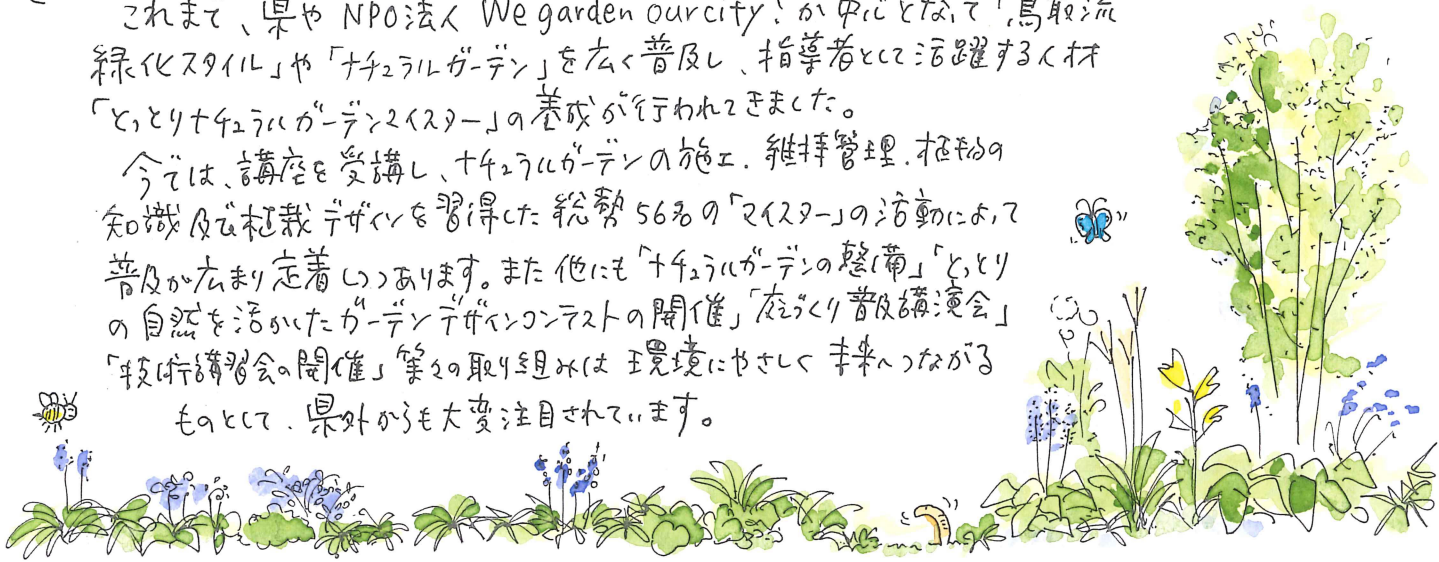 これまで、県や NPO法人 We garden our city! が中心となって「鳥取流
緑化スタイル」や「ナチュラルガーデン」を広く普及し、指導者として活躍する人材
「とっとりナチュラルガーデンマイスター」の養成が行われてきました。
今では、講座を受講し、ナチュラルガーデンの施工、維持管理、植物の
知識及び植栽デザインを習得した総勢56名の「マイスター」の活動によって
普及が広まり定着しつつあります。また他にも「ナチュラルガーデンの整備」「とっとり
の自然を活かしたガーデンデザインコンテストの開催」「庭づくり普及講演会」
「技術講習会の開催」等々の取り組みは環境にやさしく未来へつながる
ものとして、県外からも大変注目されています。